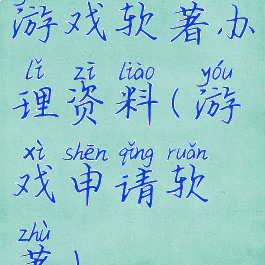 游戏软著办
lǐ zī liào yóu
理资料(游
xì shēn qǐng ruǎn
戏申请软
zhù
著)